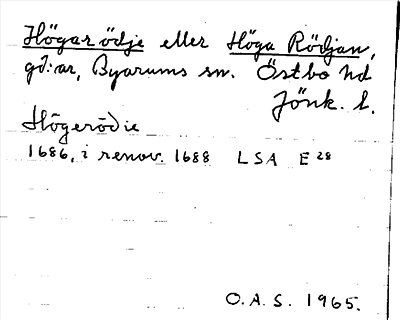 Högarödje eller Höga Rödjan,
gd:ar, Byarums sn. Östbo hd
Jönk. l.
Högerödie
1686, i renov. 1688 LSA E 28
O.A.S. 1965.